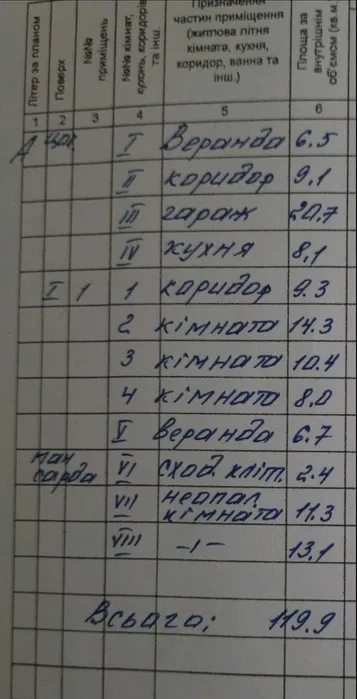 Літер за планом
Поверх
№№ приміщень
№№ кімнат, кухонь, коридорів та інш.
Призначення частин приміщення (житлова літня кімната, кухня, коридор, ванна та інш.)
Площа за внутрішнім об'ємом (кв.м.
1 2 3 4 5 6
А цок. I Веранда 6.5
II коридор 9,1
III гараж 20.7
IV кухня 8,1
I 1 1 коридор 9.3
2 кімната 14.3
3 кімната 10.4
4 кімната 8.0
V веранда 6.7
ман
сарда VI сход. кліт. 2.4
VII неопал.
кімната 11.3
VIII -ı- 13.1
Всього: 119.9